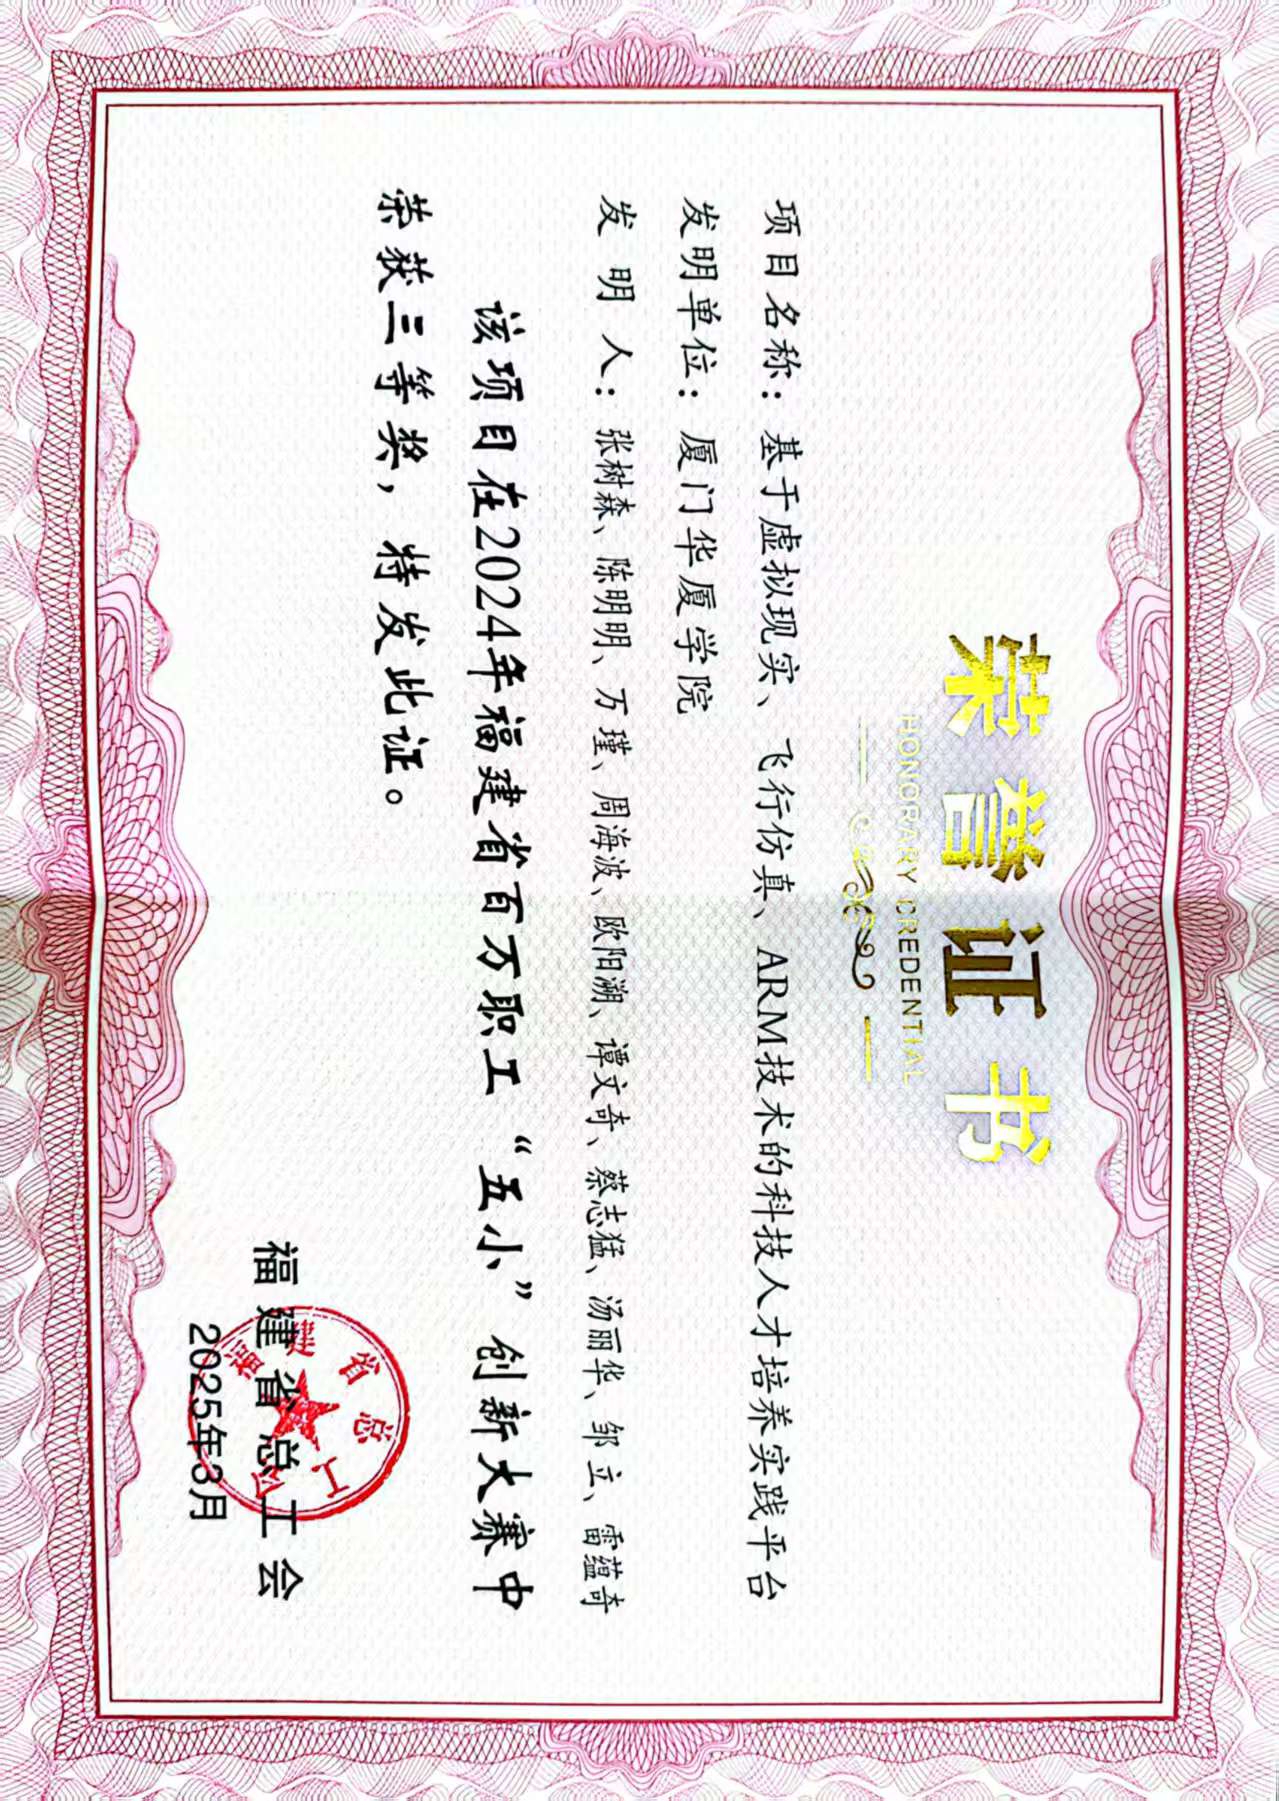 荣誉证书
HONORARY CREDENTIAL
项目名称：基于虚拟现实、飞行仿真、ARM技术的科技人才培养实践平台
发明单位：厦门华厦学院
发 明 人：张树森、陈明明、万瑾、周海波、欧阳溯、谭文奇、蔡志猛、汤丽华、邹立、雷蕴奇
该项目在2024年福建省百万职工“五小”创新大赛中
荣获三等奖，特发此证。
福建省总工会
福建省总工会
2025年3月